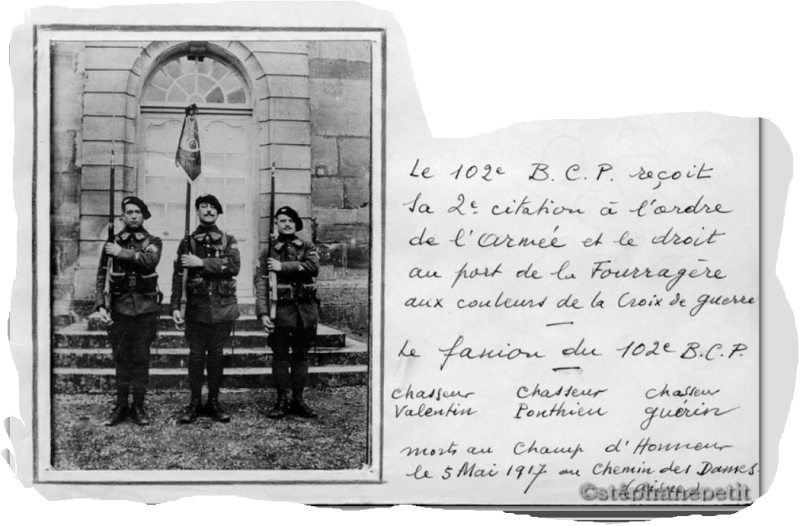 Le 102e B.C.P. reçoit
sa 2e citation à l'ordre
de l'Armée et le droit
au port de la Fourragère
aux couleurs de la Croix de guerre
Le fanion du 102e B.C.P.
chasseur chasseur chasseur
Valentin Ponthieu guérin
morts au Champ d'Honneur
le 5 Mai 1917 au Chemin des Dames.
(aisne)
©stéphanepetit